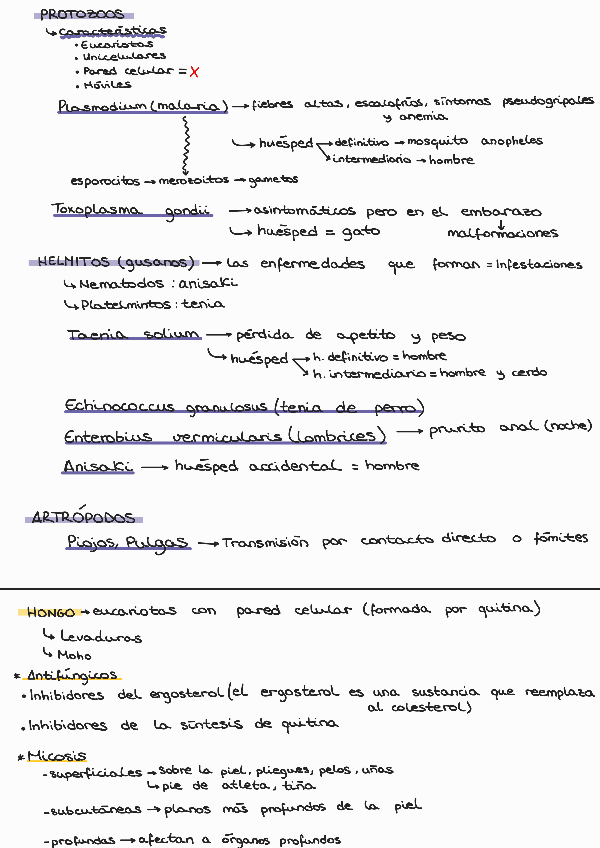 PROTOZOOS
↳ Características
• Eucariotas
• Unicelulares
• Pared celular = X
• Móviles
Plasmodium (malaria) → fiebres altas, escalofríos, síntomas pseudogripales
y anemia
↳ huésped → definitivo → mosquito anopheles
→ intermediario → hombre
esporocitos → merozoitos → gametos
Toxoplasma gondii → asintomáticos pero en el embarazo
↳ huésped = gato malformaciones
HELMITOS (gusanos) → las enfermedades que forman = Infestaciones
↳ Nematodos : anisaki
↳ Platelmintos : tenia
Taenia solium → pérdida de apetito y peso
↳ huésped → h. definitivo = hombre
→ h. intermediario = hombre y cerdo
Echinococcus granulosus (tenia de perro)
Enterobius vermicularis (lombrices) → prurito anal (noche)
Anisaki → huésped accidental = hombre
ARTRÓPODOS
Piojos, Pulgas → Transmisión por contacto directo o fómites
HONGO → eucariotas con pared celular (formada por quitina)
↳ Levaduras
↳ Moho
* Antifúngicos
• Inhibidores del ergosterol (el ergosterol es una sustancia que reemplaza
al colesterol)
• Inhibidores de la síntesis de quitina
* Micosis
- superficiales → sobre la piel, pliegues, pelos, uñas
↳ pie de atleta, tiña
- subcutáneas → planos más profundos de la piel
- profundas → afectan a órganos profundos